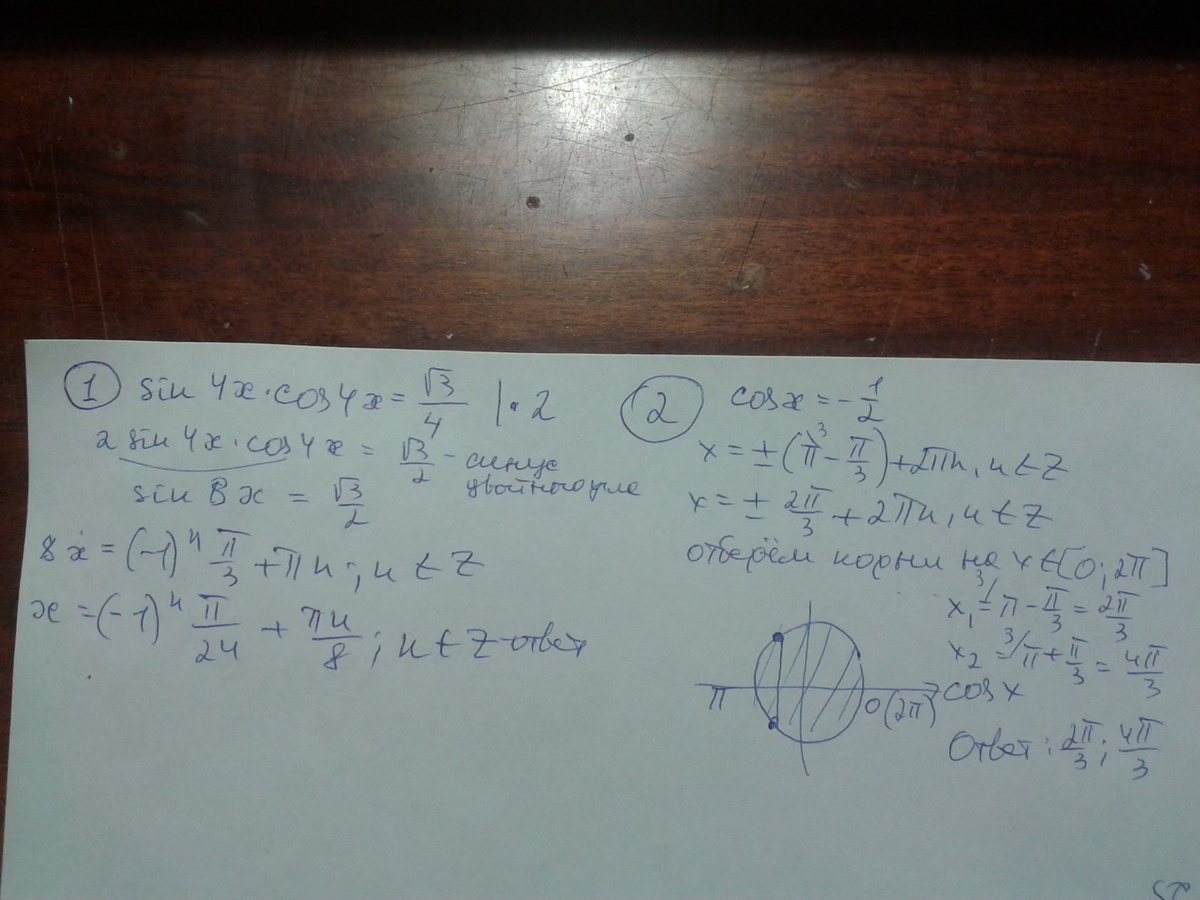 ① sin 4x·cos4x = √3/4 |·2
2 sin 4x·cos 4x = √3/2 - синус двойного угла
sin 8x = √3/2
8x = (-1)ⁿ π/3 + πn; n ∈ Z
x = (-1)ⁿ π/24 + πn/8; n ∈ Z - ответ
② cosx = -1/2
x = ±(π³ - π/3) + 2πn, n ∈ Z
x = ± 2π/3 + 2πn, n ∈ Z
отберём корни на x ∈ [0; 2π]
x₁ = ³⁄π - π/3 = 2π/3
x₂ = ³⁄π + π/3 = 4π/3
π
0(2π)
cosx
Ответ: 2π/3; 4π/3